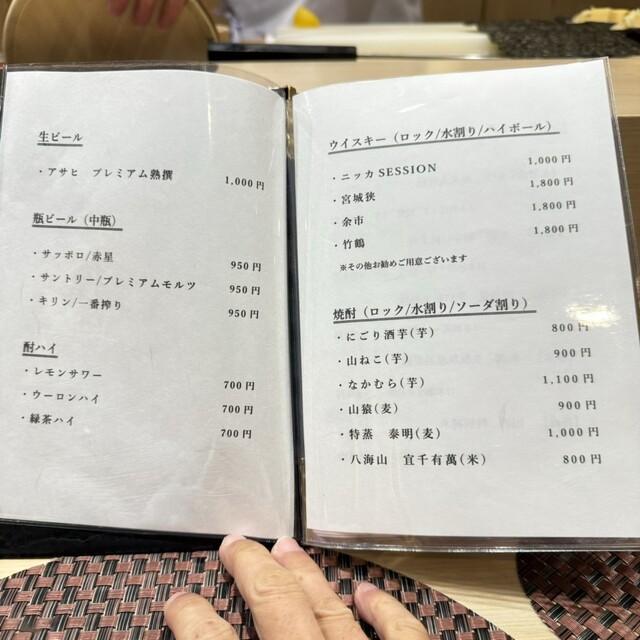 生ビール
・アサヒ　プレミアム熟撰　1,000円
瓶ビール（中瓶）
・サッポロ/赤星　950円
・サントリー/プレミアムモルツ　950円
・キリン/一番搾り　950円
酎ハイ
・レモンサワー　700円
・ウーロンハイ　700円
・緑茶ハイ　700円
ウイスキー（ロック/水割り/ハイボール）
・ニッカ SESSION　1,000円
・宮城狭　1,800円
・余市　1,800円
・竹鶴　1,800円
※その他お勧めご用意ございます
焼酎（ロック/水割り/ソーダ割り）
・にごり酒芋(芋)　800円
・山ねこ(芋)　900円
・なかむら(芋)　1,100円
・山猿(麦)　900円
・特蒸　泰明(麦)　1,000円
・八海山　宜千有萬(米)　800円